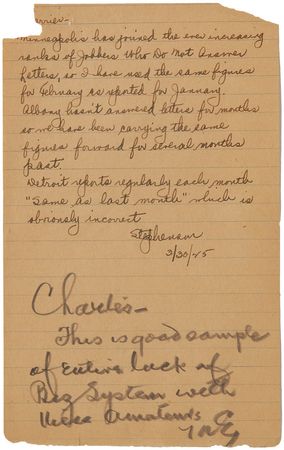 Minneapolis has joined the ever increasing
ranks of Jobbers Who Do Not Answer
Letters, so I have used the same figures
for February as reported for January.
Albany hasn't answered letters for months
so we have been carrying the same
figures forward for several months
past.
Detroit reports regularly each month
"same as last month" which is
obviously incorrect
Stephenson
3/30/25
Charles—
This is good sample
of entire lack of
Biz System with
these Amateurs